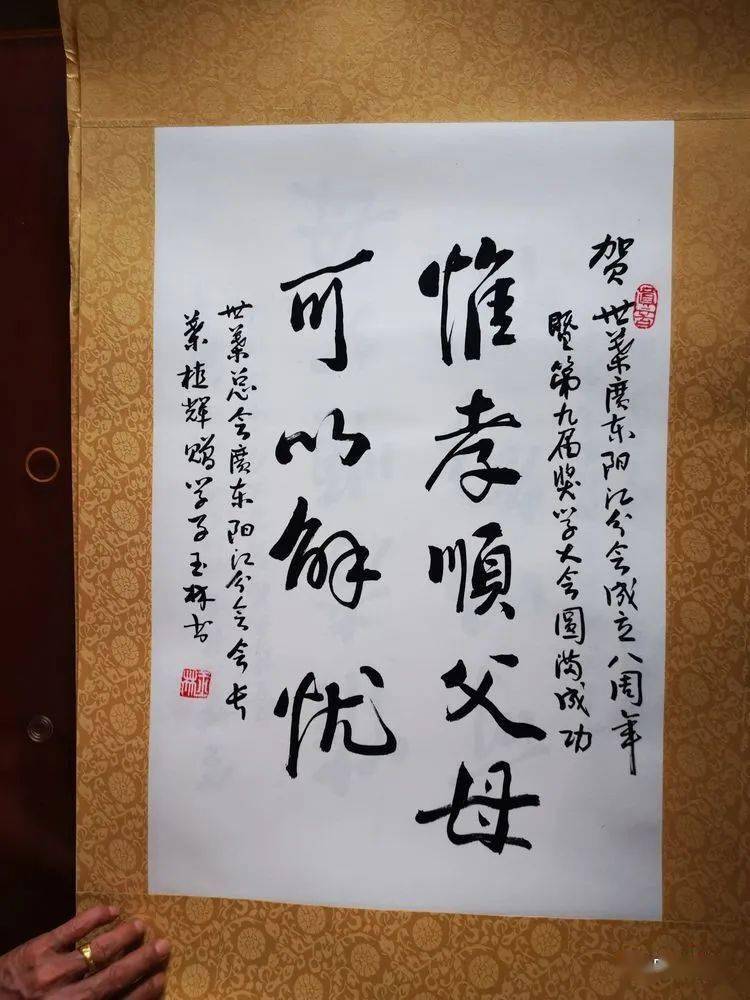 贺世叶廣东阳江分会成立八周年
暨第九届奖学大会圆满成功
惟孝順父母
可以解忧
世叶总会廣东阳江分会会长
叶植輝赠学子玉林书
玉林